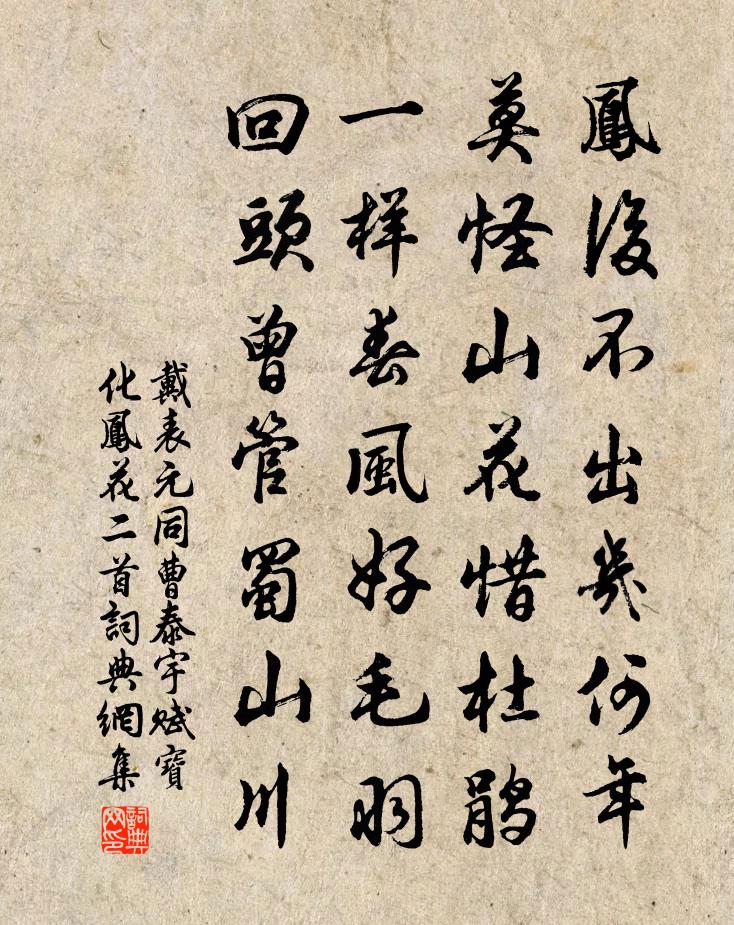 鳳後不出幾何年
莫怪山花惜杜鵑
一样春風好毛羽
回頭曾管蜀山川
戴表元同曹泰宇赋寶
化鳳花二首詞典網集
詞典网印